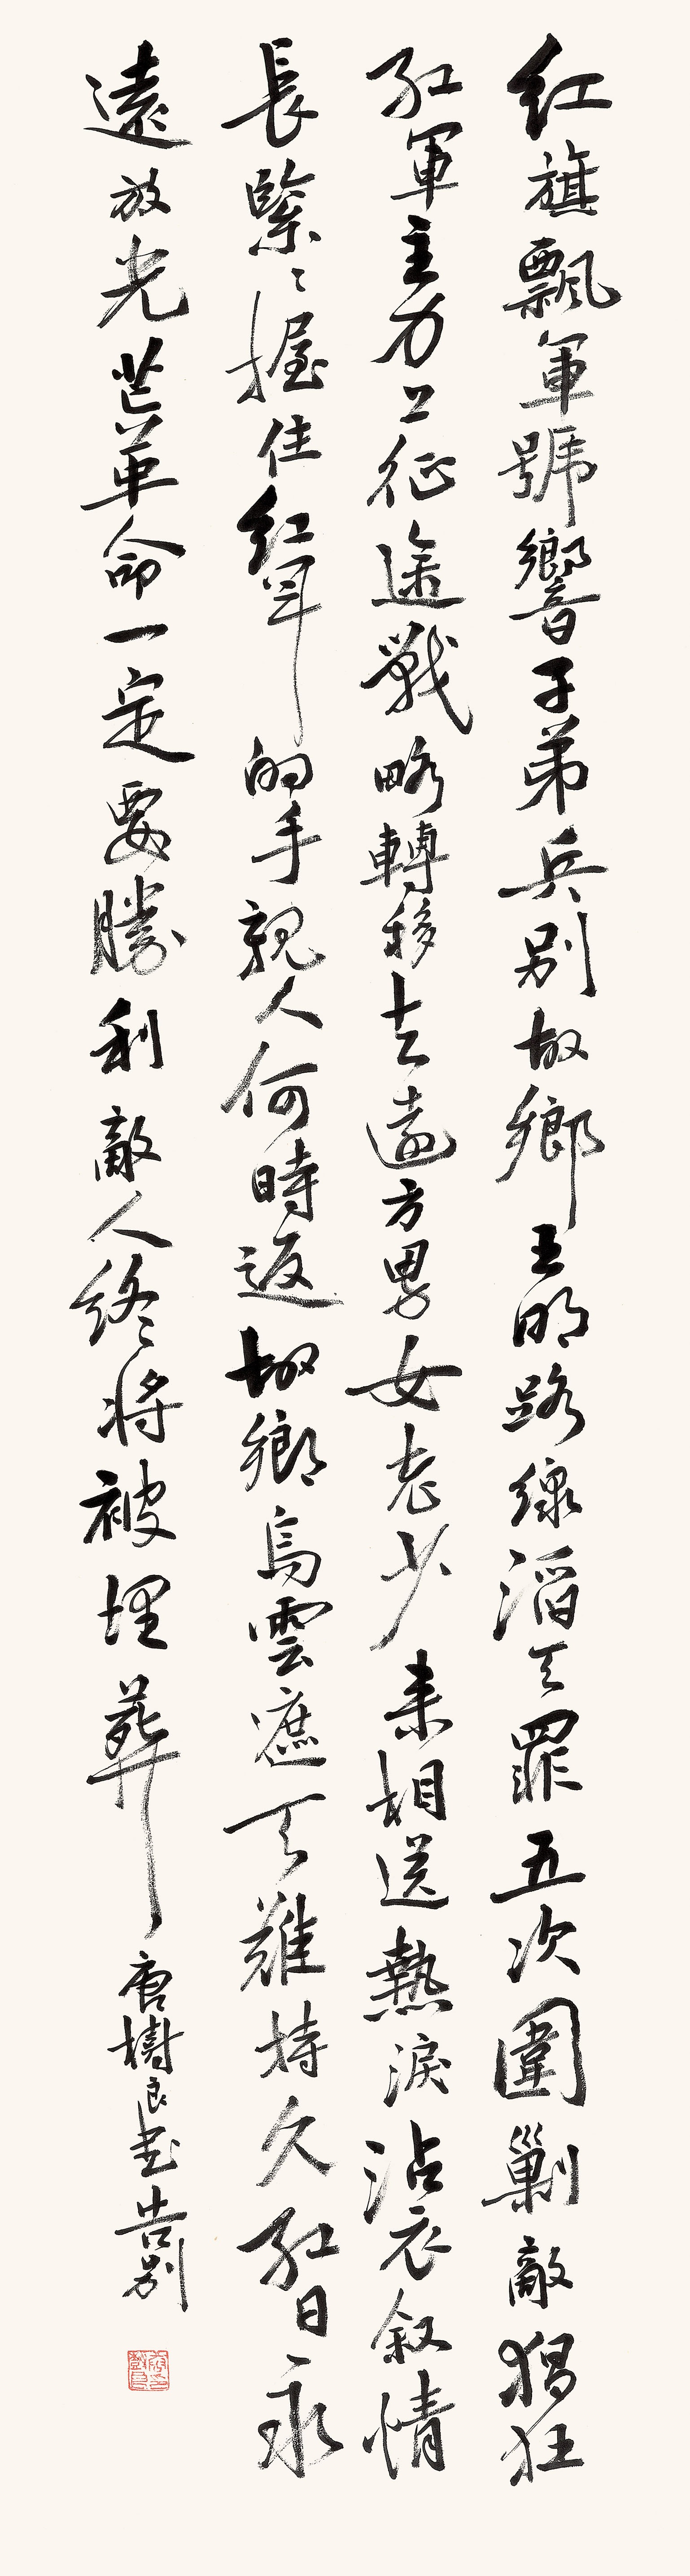 红旗飘軍號響子弟兵别故鄉王明路線滔天罪五次圍剿敵猖狂
红軍主力上征途戰略轉移去遠方男女老少来相送熱淚沾衣叙情
長緊々握住红軍的手親人何時返故鄉烏雲遮天難持久红日永
遠放光芒革命一定要勝利敵人终将被埋葬 唐樹良书告别